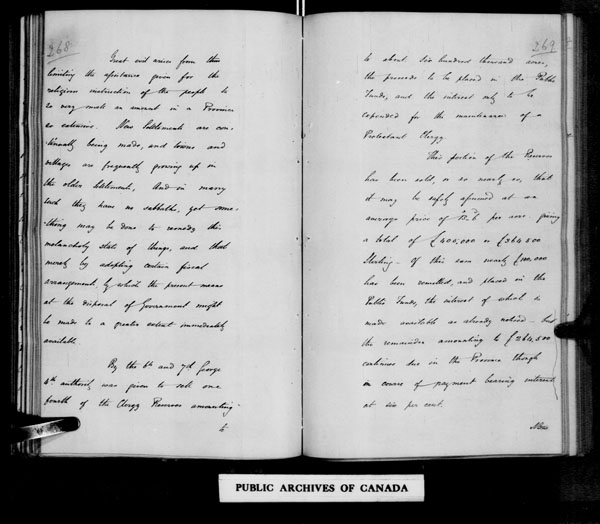 268
Great evil arises from thus
limiting the assistance given for the
religious instruction of the people to
so very small an amount in a Province
so extensive. New Settlements are con-
tinually being made, and towns and
villages are frequently growing up in
the older settlements, And in many
such they have no sabbaths, yet some-
thing may be done to remedy this
melancholy state of things, and that
merely by adopting certain fiscal
arrangements by which the present means
at the disposal of Government might
be made to a greater extent immediately
available.
By the 6th and 7th George
4th authority was given to sell one
fourth of the Clergy Reserves amounting
to
269
to about six hundred thousand acres,
the proceeds to be placed in the Public
Funds, and the interest only to be
expended for the maintenance of a
Protestant Clergy
This portion of the Reserves
has been sold, or so nearly so, that
it may be safely assumed at an
average price of per acre giving
a total of £400,000 or £364,500
Sterling - Of this sum nearly £100,000
has been remitted, and placed in the
Public Funds, the interest of which is
made available as already noticed - but
the remainder amounting to £264,500
continues due in the Province though
in course of payment bearing interest
at six per cent.
Now
PUBLIC ARCHIVES OF CANADA